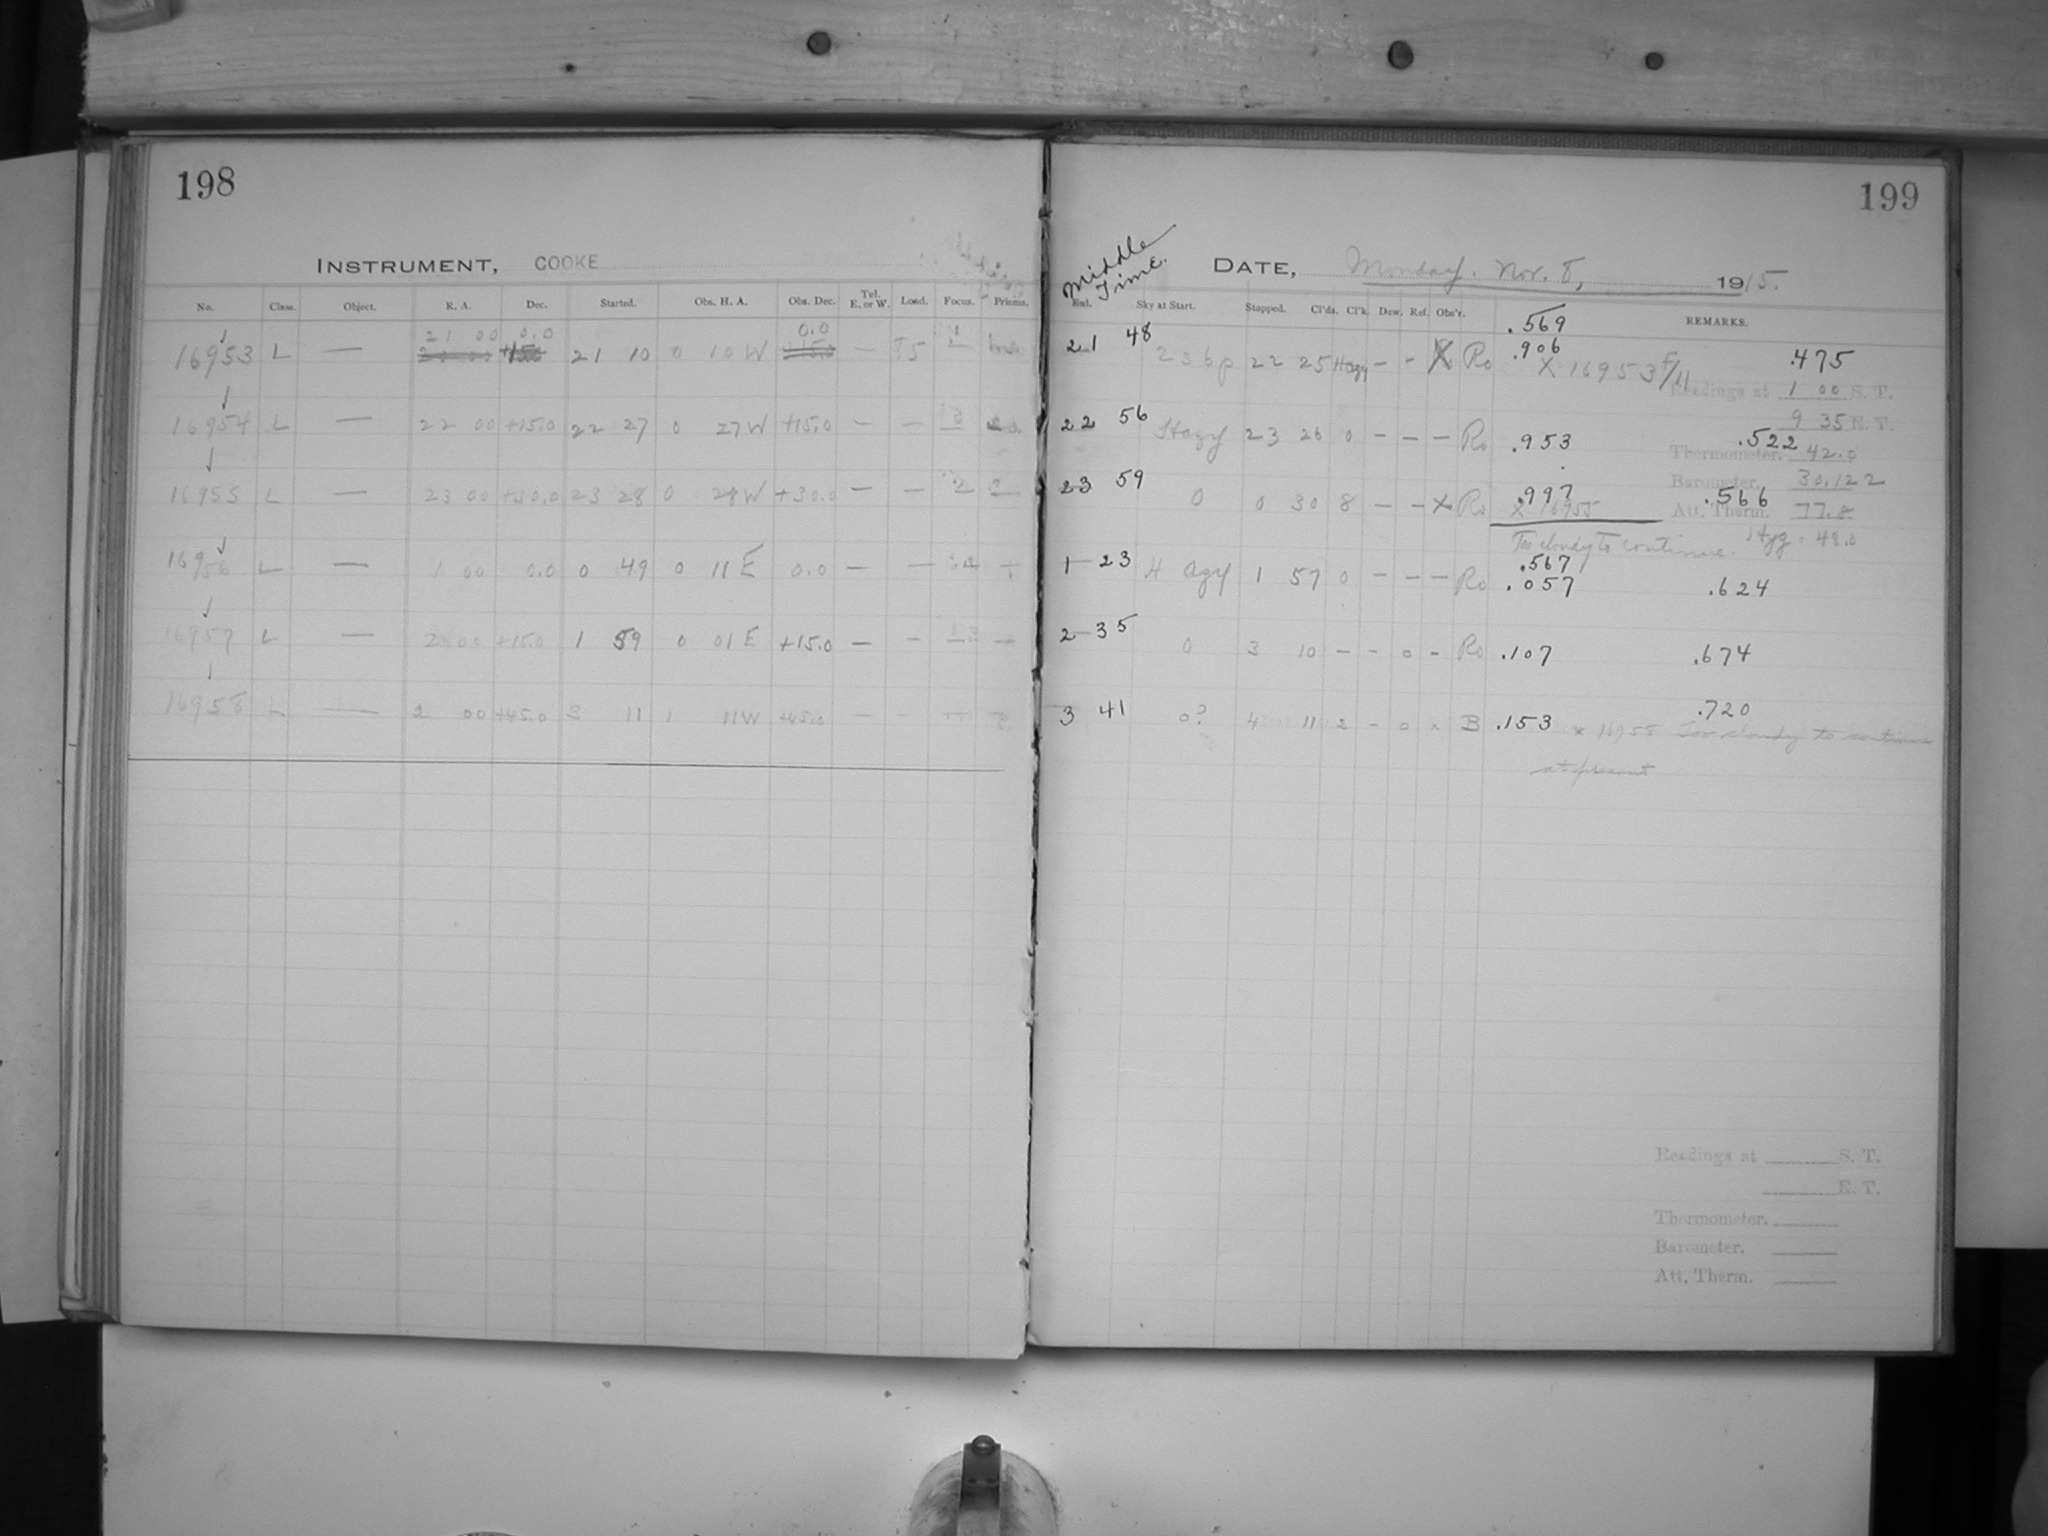 198
INSTRUMENT, COOKE
No. Class. Object. R. A. Dec. Started. Obs. H. A. Obs. Dec. Tel. E. or W. Load. Focus. Prisms.
21 00 0.0 0.0
16953 L — 21 10 0 10 W — 85
16954 L — 22 00 +15.0 22 27 0 27 W +15.0 — —
16955 L — 23 00 +30.0 23 28 0 28 W +30.0 — — 2
16956 L — 1 00 0.0 0 49 0 11 E 0.0 — —
16957 L — 2 00 +15.0 1 59 0 01 E +15.0 — —
16958 L — 2 00 +45.0 3 11 1 11 W +45.0 — —
199
Middle Time.
DATE, Monday. Nov. 8, 1915.
Sky at Start. Stopped. Cl'ds. Cl'k. Dew. Ref. Obs'r. REMARKS.
.569
21 48 22 25 Hazy — - X Ro .906 X 16953 F/11 .475
Readings at 1 00 S. T.
9 35 E. T.
22 56 Hazy 23 26 0 — — — Ro .953 .522
Thermometer. 42.0
Barometer. 30.122
23 59 0 0 30 8 — — X Ro .997 X 16955 .566
Att. Therm. 77.8
Hyg. 48.0
Too cloudy to continue.
.567
1 23 Hazy 1 57 0 — — — Ro .057 .624
2 35 0 3 10 — - 0 - Ro .107 .674
3 41 0? 4 11 2 - 0 x B .153 .720
x 16958 Too cloudy to continue
at present
Readings at S. T.
E. T.
Thermometer.
Barometer.
Att. Therm.